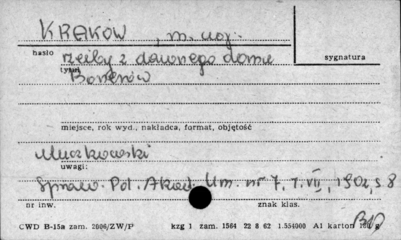 KRAKÓW, m. woj.
hasło rzeźby z dawnego domu sygnatura
tytuł Bonerów
miejsce, rok wyd., nakładca, format, objętość
Muczkowski
uwagi:
Spraw. Pol. Akad. Um. nr 7, 7. VII, 1902, s 8
nr inw. znak klas.
CWD B-15a zam. 2006/ZW/P kzg 1 zam. 1564 22 8 62 1.554000 A1 karton